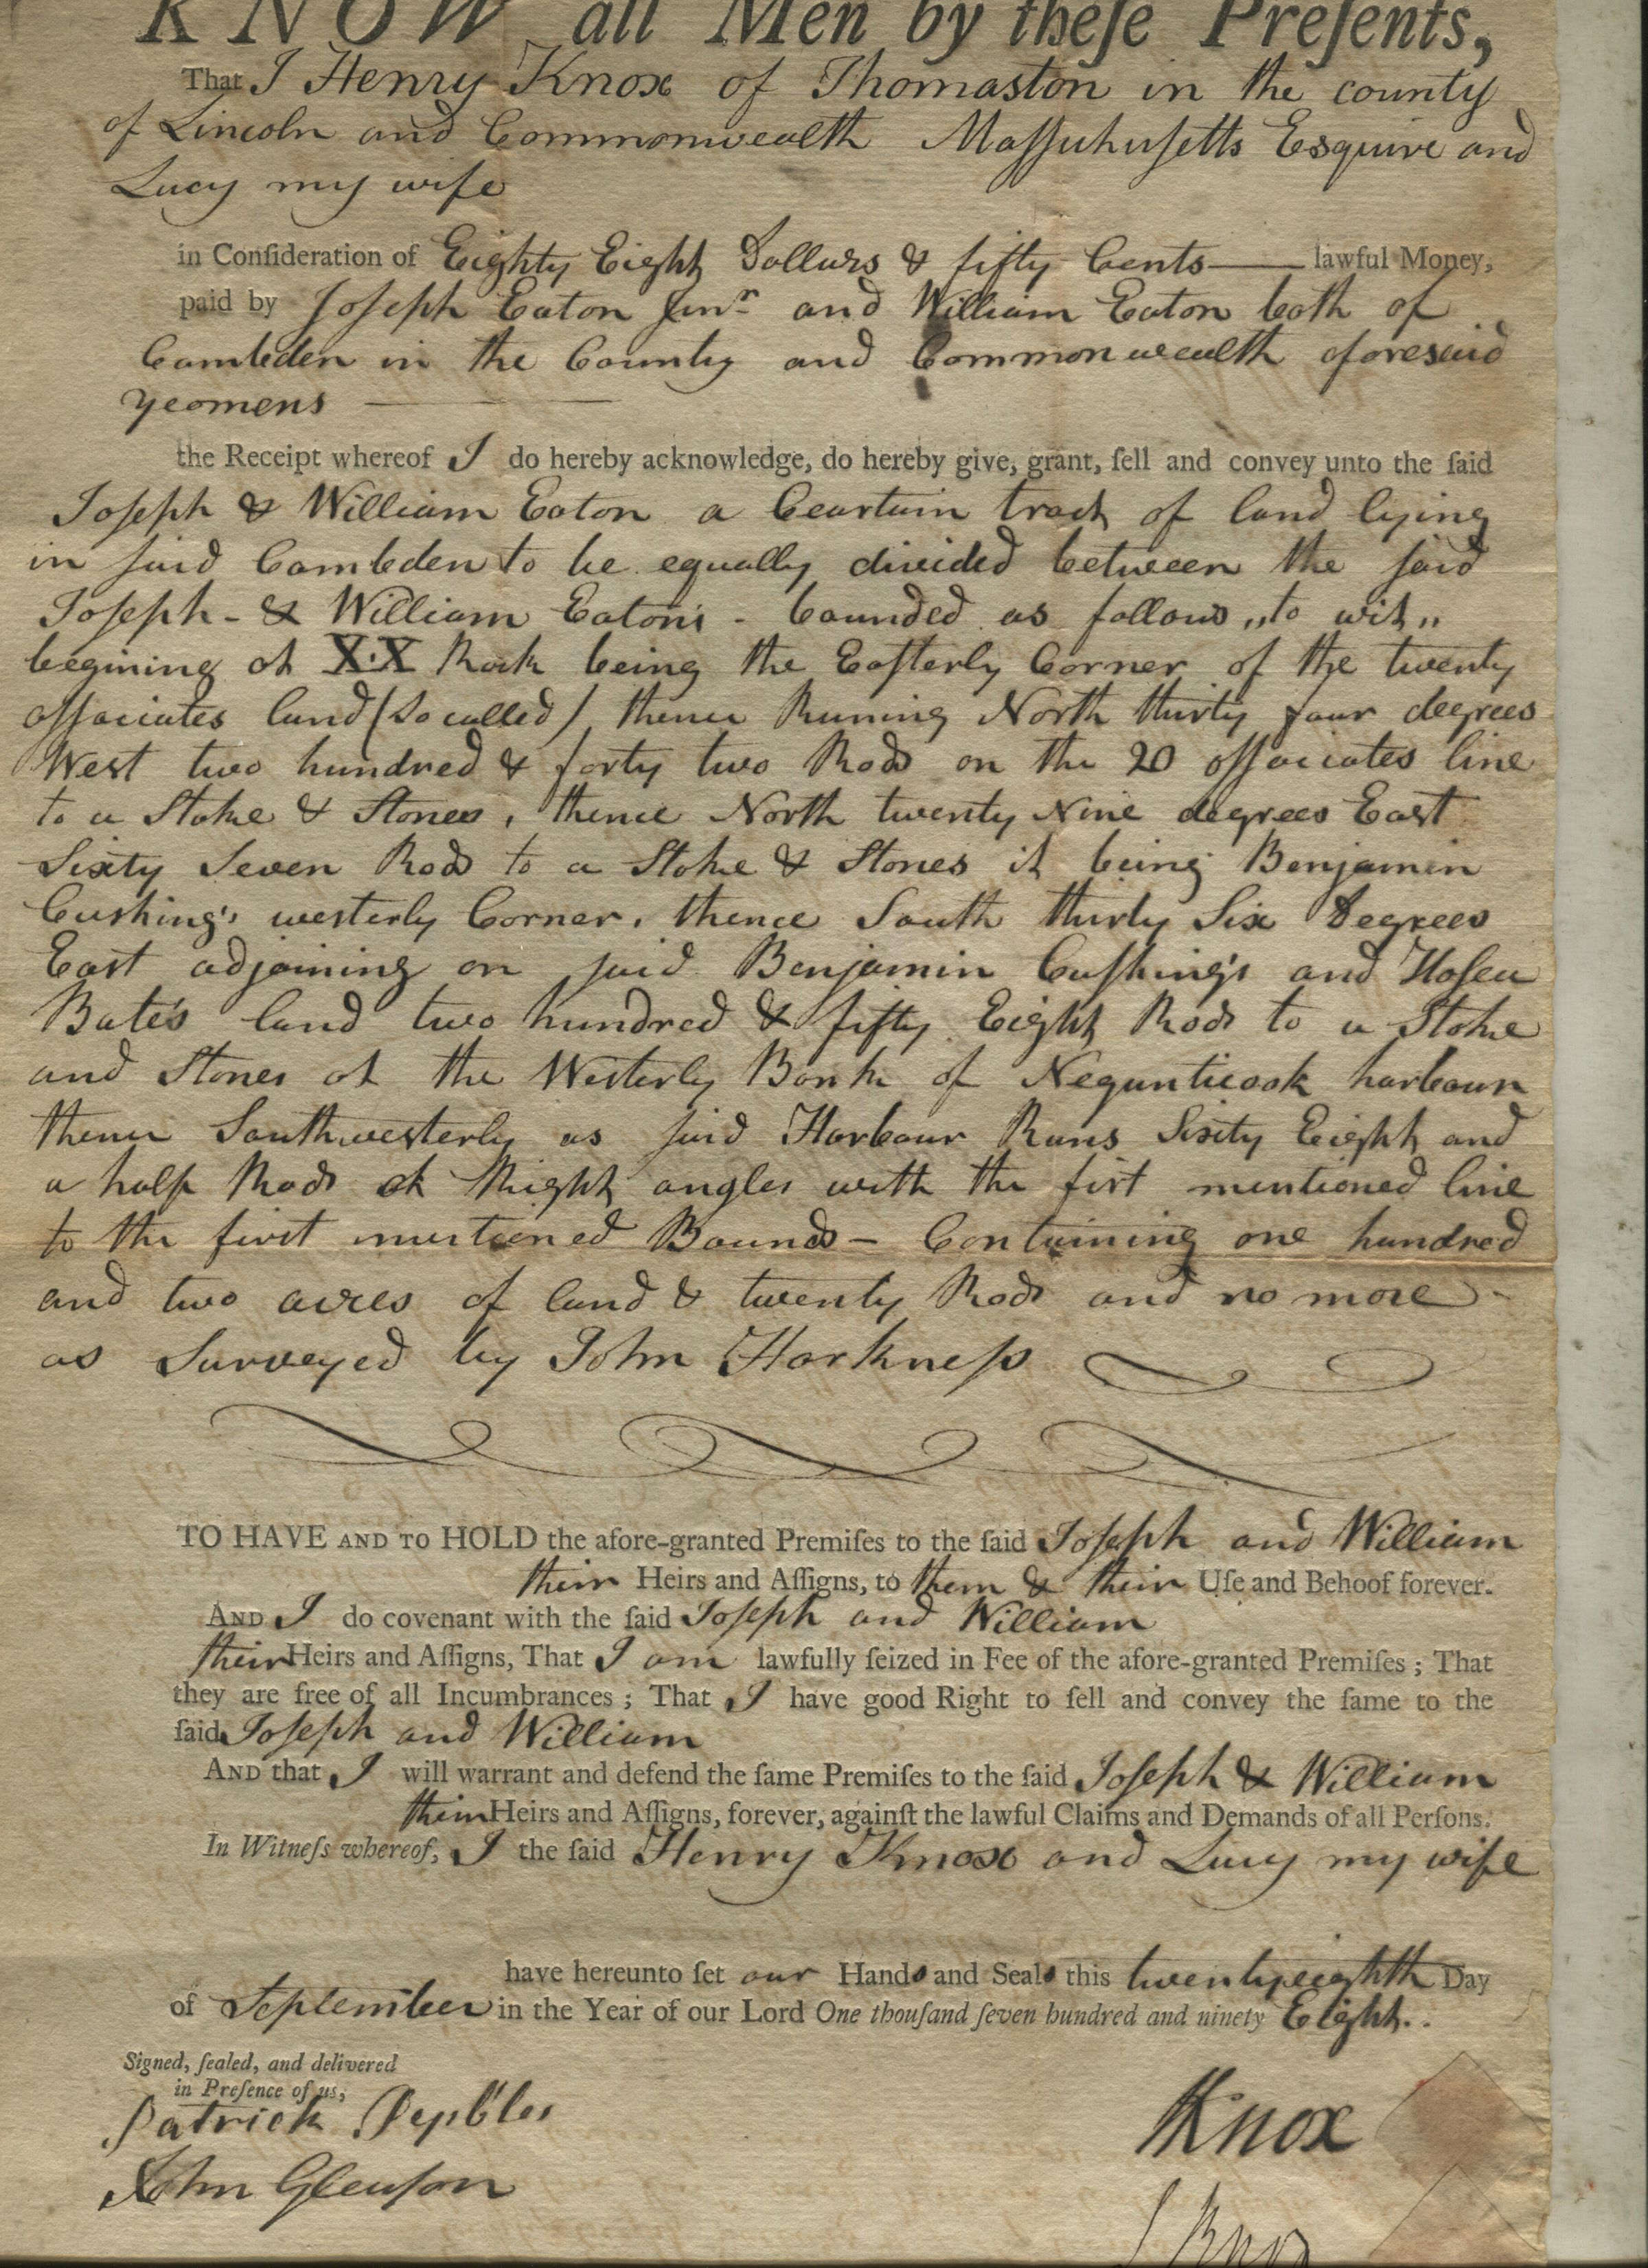 KNOW all Men by theſe Preſents,
That I Henry Knox of Thomaston in the county
of Lincoln and Commonwealth Maſſuhuſetts Esquire and
Lucy my wife
in Conſideration of Eighty Eight Dollars & fifty Cents lawful Money,
paid by Joſeph Eaton Junr and William Eaton both of
Cambden in the County and Commonwealth aforesaid
yeomens
the Receipt whereof I do hereby acknowledge, do hereby give, grant, ſell and convey unto the ſaid
Joſeph & William Eaton a Ceartain tract of land lying
in ſaid Cambden to be equally divided between the ſaid
Joſeph - & William Eaton's - bounded as follows „to wit„
begining at X·X Rock being the Eaſterly Corner of the twenty
aſſociates land (So called) thence Runing North thirty four degrees
West two hundred & forty two Rods on the 20 aſſociates line
to a Stake & Stones, thence North twenty Nine degrees East
Sixty Seven Rods to a Stake & Stones it being Benjamin
Cushing's westerly Corner, thence South thirty Six Degrees
East adjoining on ſaid Benjamin Cuſhing's and Hoſea
Bate's land two hundred & fifty Eight Rods to a Stake
and Stones at the Westerly Bank of Negunticook harbour
thence Southwesterly as ſaid Harbour Runs Sixity Eight and
a half Rods at Right angles with the firt mentioned line
to the first mentioned Bounds - Containing one hundred
and two acres of land & twenty Rods and no more -
as Surveyed by John Harkneſs
TO HAVE AND TO HOLD the afore-granted Premiſes to the ſaid Joſeph and William
their Heirs and Aſſigns, to them & their Uſe and Behoof forever.
AND I do covenant with the ſaid Joſeph and William
their Heirs and Aſſigns, That I am lawfully ſeized in Fee of the afore-granted Premiſes; That
they are free of all Incumbrances; That I have good Right to ſell and convey the ſame to the
ſaid Joſeph and William
AND that I will warrant and defend the ſame Premiſes to the ſaid Joſeph & William
their Heirs and Aſſigns, forever, againſt the lawful Claims and Demands of all Perſons.
In Witneſs whereof, I the ſaid Henry Knox and Lucy my wife
have hereunto ſet our Hands and Seals this twentyeighth Day
of September in the Year of our Lord One thouſand ſeven hundred and ninety Eight..
Signed, ſealed, and delivered
in Preſence of us,
Patrick Pepbles
John Gleaſon
HKnox
L Knox